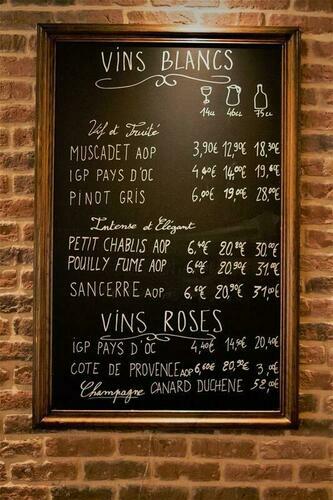 VINS BLANCS
14cl 46cl 75cl
Vif et Fruité
MUSCADET AOP 3,90€ 12,90€ 18,90€
IGP PAYS D'OC 4,40€ 14,00€ 19,90€
PINOT GRIS 6,00€ 19,00€ 28,00€
Intense et Elégant
PETIT CHABLIS AOP 6,40€ 20,80€ 30,00€
POUILLY FUMÉ AOP 6,60€ 20,90€ 31,90€
SANCERRE AOP 6,40€ 20,90€ 31,00€
VINS ROSES
IGP PAYS D'OC 4,40€ 14,90€ 20,40€
COTE DE PROVENCE AOP 6,60€ 20,90€
Champagne CANARD DUCHENE 52,00€